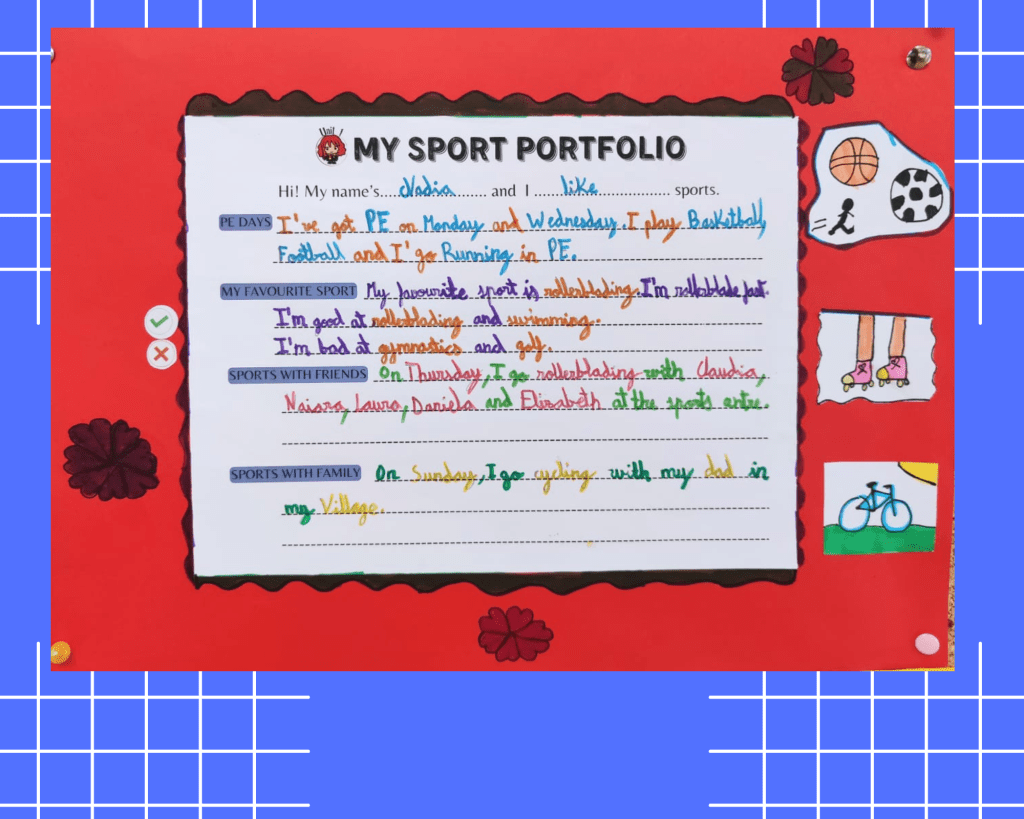 Unit 1
MY SPORT PORTFOLIO
Hi! My name's Nadia and I like sports.
PE DAYS I've got PE on Monday and Wednesday. I play Basketball,
Football and I'go Running in PE.
MY FAVOURITE SPORT My favourite sport is rollerblading. I'm rollerblade fast.
I'm good at rollerblading and swimming.
I'm bad at gymnastics and golf.
SPORTS WITH FRIENDS On Thursday, I go rollerblading with Claudia,
Naiara, Laura, Daniela and Elisabeth at the sports entre.
SPORTS WITH FAMILY On Sunday, I go cycling with my dad in
my Village.